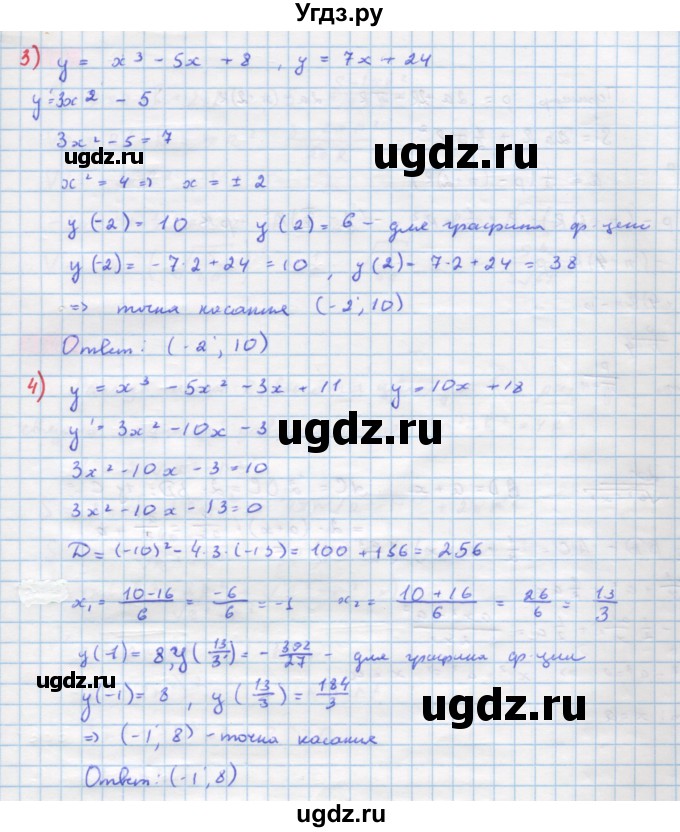 Угдз.ру
3) y = x³ - 5x + 8 , y = 7x + 24
y' = 3x² - 5
3x² - 5 = 7
ugdz.ru
x² = 4 => x = ± 2
y(-2) = 10 y(2) = 6 - для графика ф-ции
y(-2) = -7·2 + 24 = 10 , y(2) = 7·2 + 24 = 38
ugdz.ru
=> точка касания (-2; 10)
Ответ: (-2; 10)
4) y = x³ - 5x² - 3x + 11 y = 10x + 18
y' = 3x² - 10x - 3
ugdz.ru
3x² - 10x - 3 = 10
3x² - 10x - 13 = 0
D = (-10)² - 4·3·(-13) = 100 + 156 = 256
x₁ = (10-16)/6 = -6/6 = -1 x₂ = (10+16)/6 = 26/6 = 13/3
y(-1) = 8, y(13/3) = -392/27 - для графика ф-ции
ugdz.ru
y(-1) = 8 , y(13/3) = 184/3
ugdz.ru
=> (-1; 8) - точка касания
Ответ: (-1; 8)
ugdz.ru